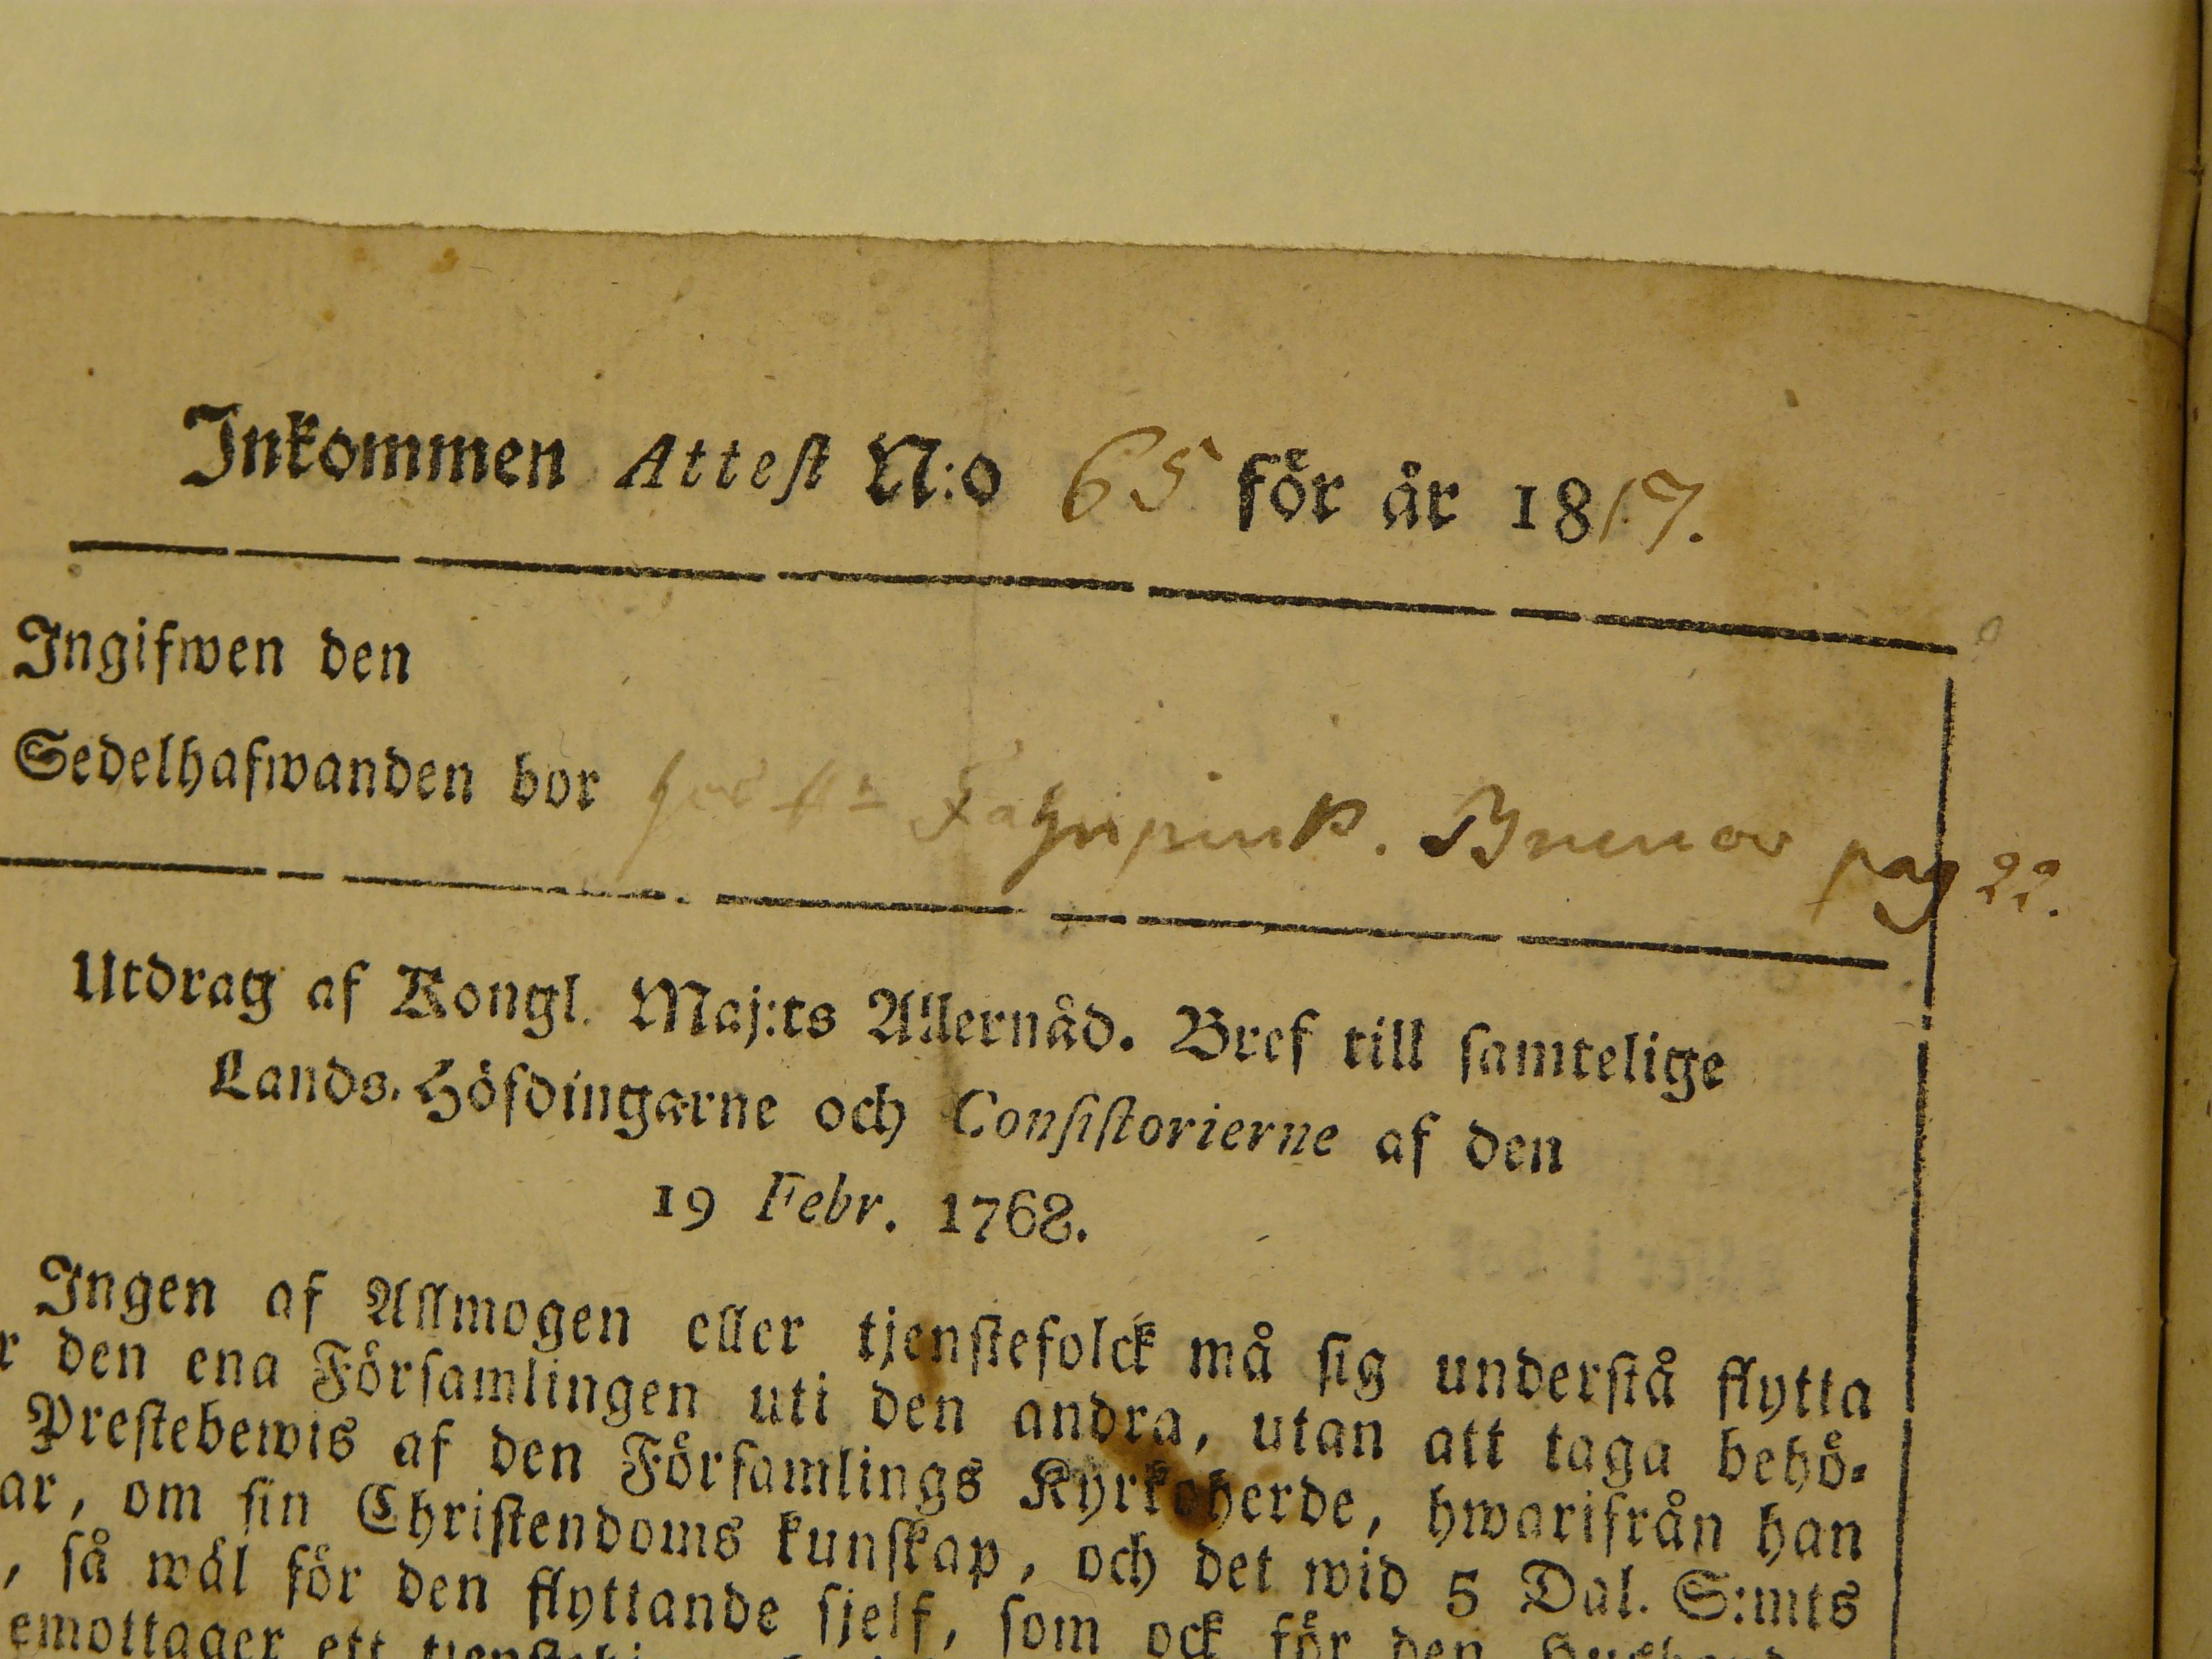 Inkommen Attest N:o 65 för år 1817.
Ingifwen den
Sedelhafwanden bor hos pag 22.
Utdrag af Kongl. Maj:ts Allernåd. Bref till samtelige
Lands-Höfdingarne och Consistorierne af den
19 Febr. 1768.
Ingen af Allmogen eller tjenstefolck må sig understå flytta
r den ena Församlingen uti den andra, utan att taga behö-
Prestebewis af den Församlings Kyrkoherde, hwarifrån han
ar, om sin Christendoms kunskap, och det wid 5 Dal. S:mts
, så wäl för den flyttande sjelf, som ock för den
emottager ett